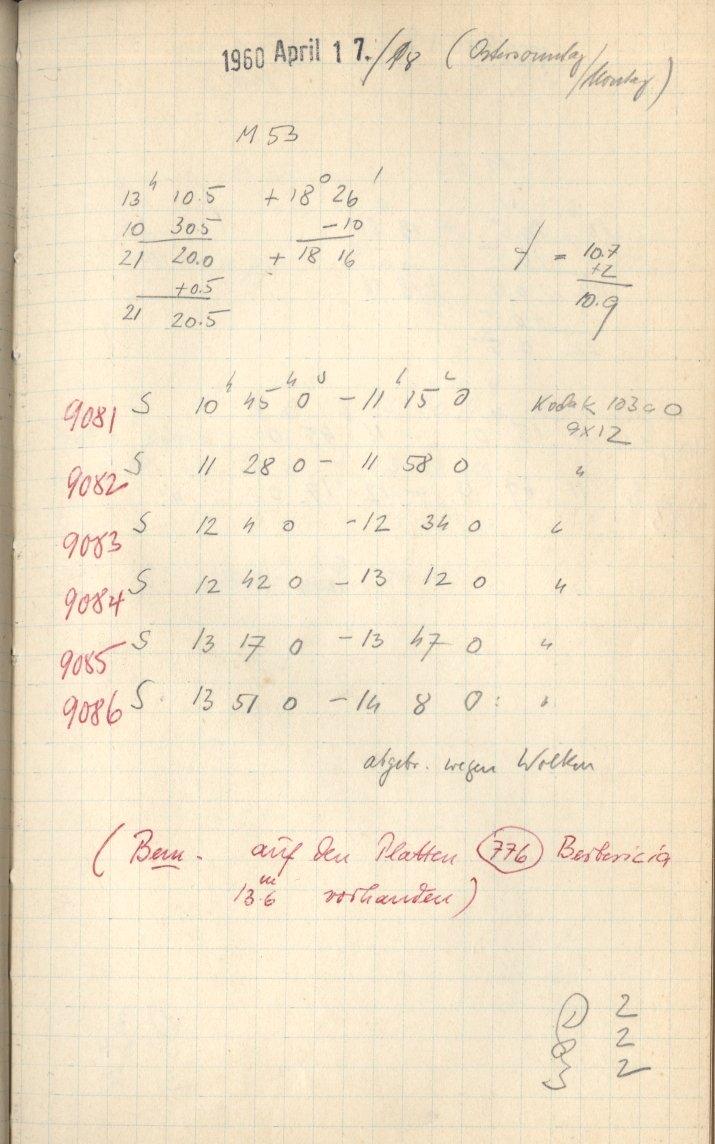 1960 April 17./18 (Ostersonntag/Montag)
M 53
13h 10.5 +18° 26'
10 30.5 -10
21 20.0 +18 16
+0.5
21 20.5
= 10.7
+2
10.9
9081 S 10h 45 0 - 11h 15 0 Kodak 103a O
9x12
9082 S 11 28 0 - 11 58 0 "
9083 S 12 4 0 - 12 34 0 "
9084 S 12 42 0 - 13 12 0 "
9085 S 13 17 0 - 13 47 0 "
9086 S 13 51 0 - 14 8 0: "
abgebr. wegen Wolken
(Bem. auf den Platten 776 Berbericia
13.6m vorhanden)
2
2
2